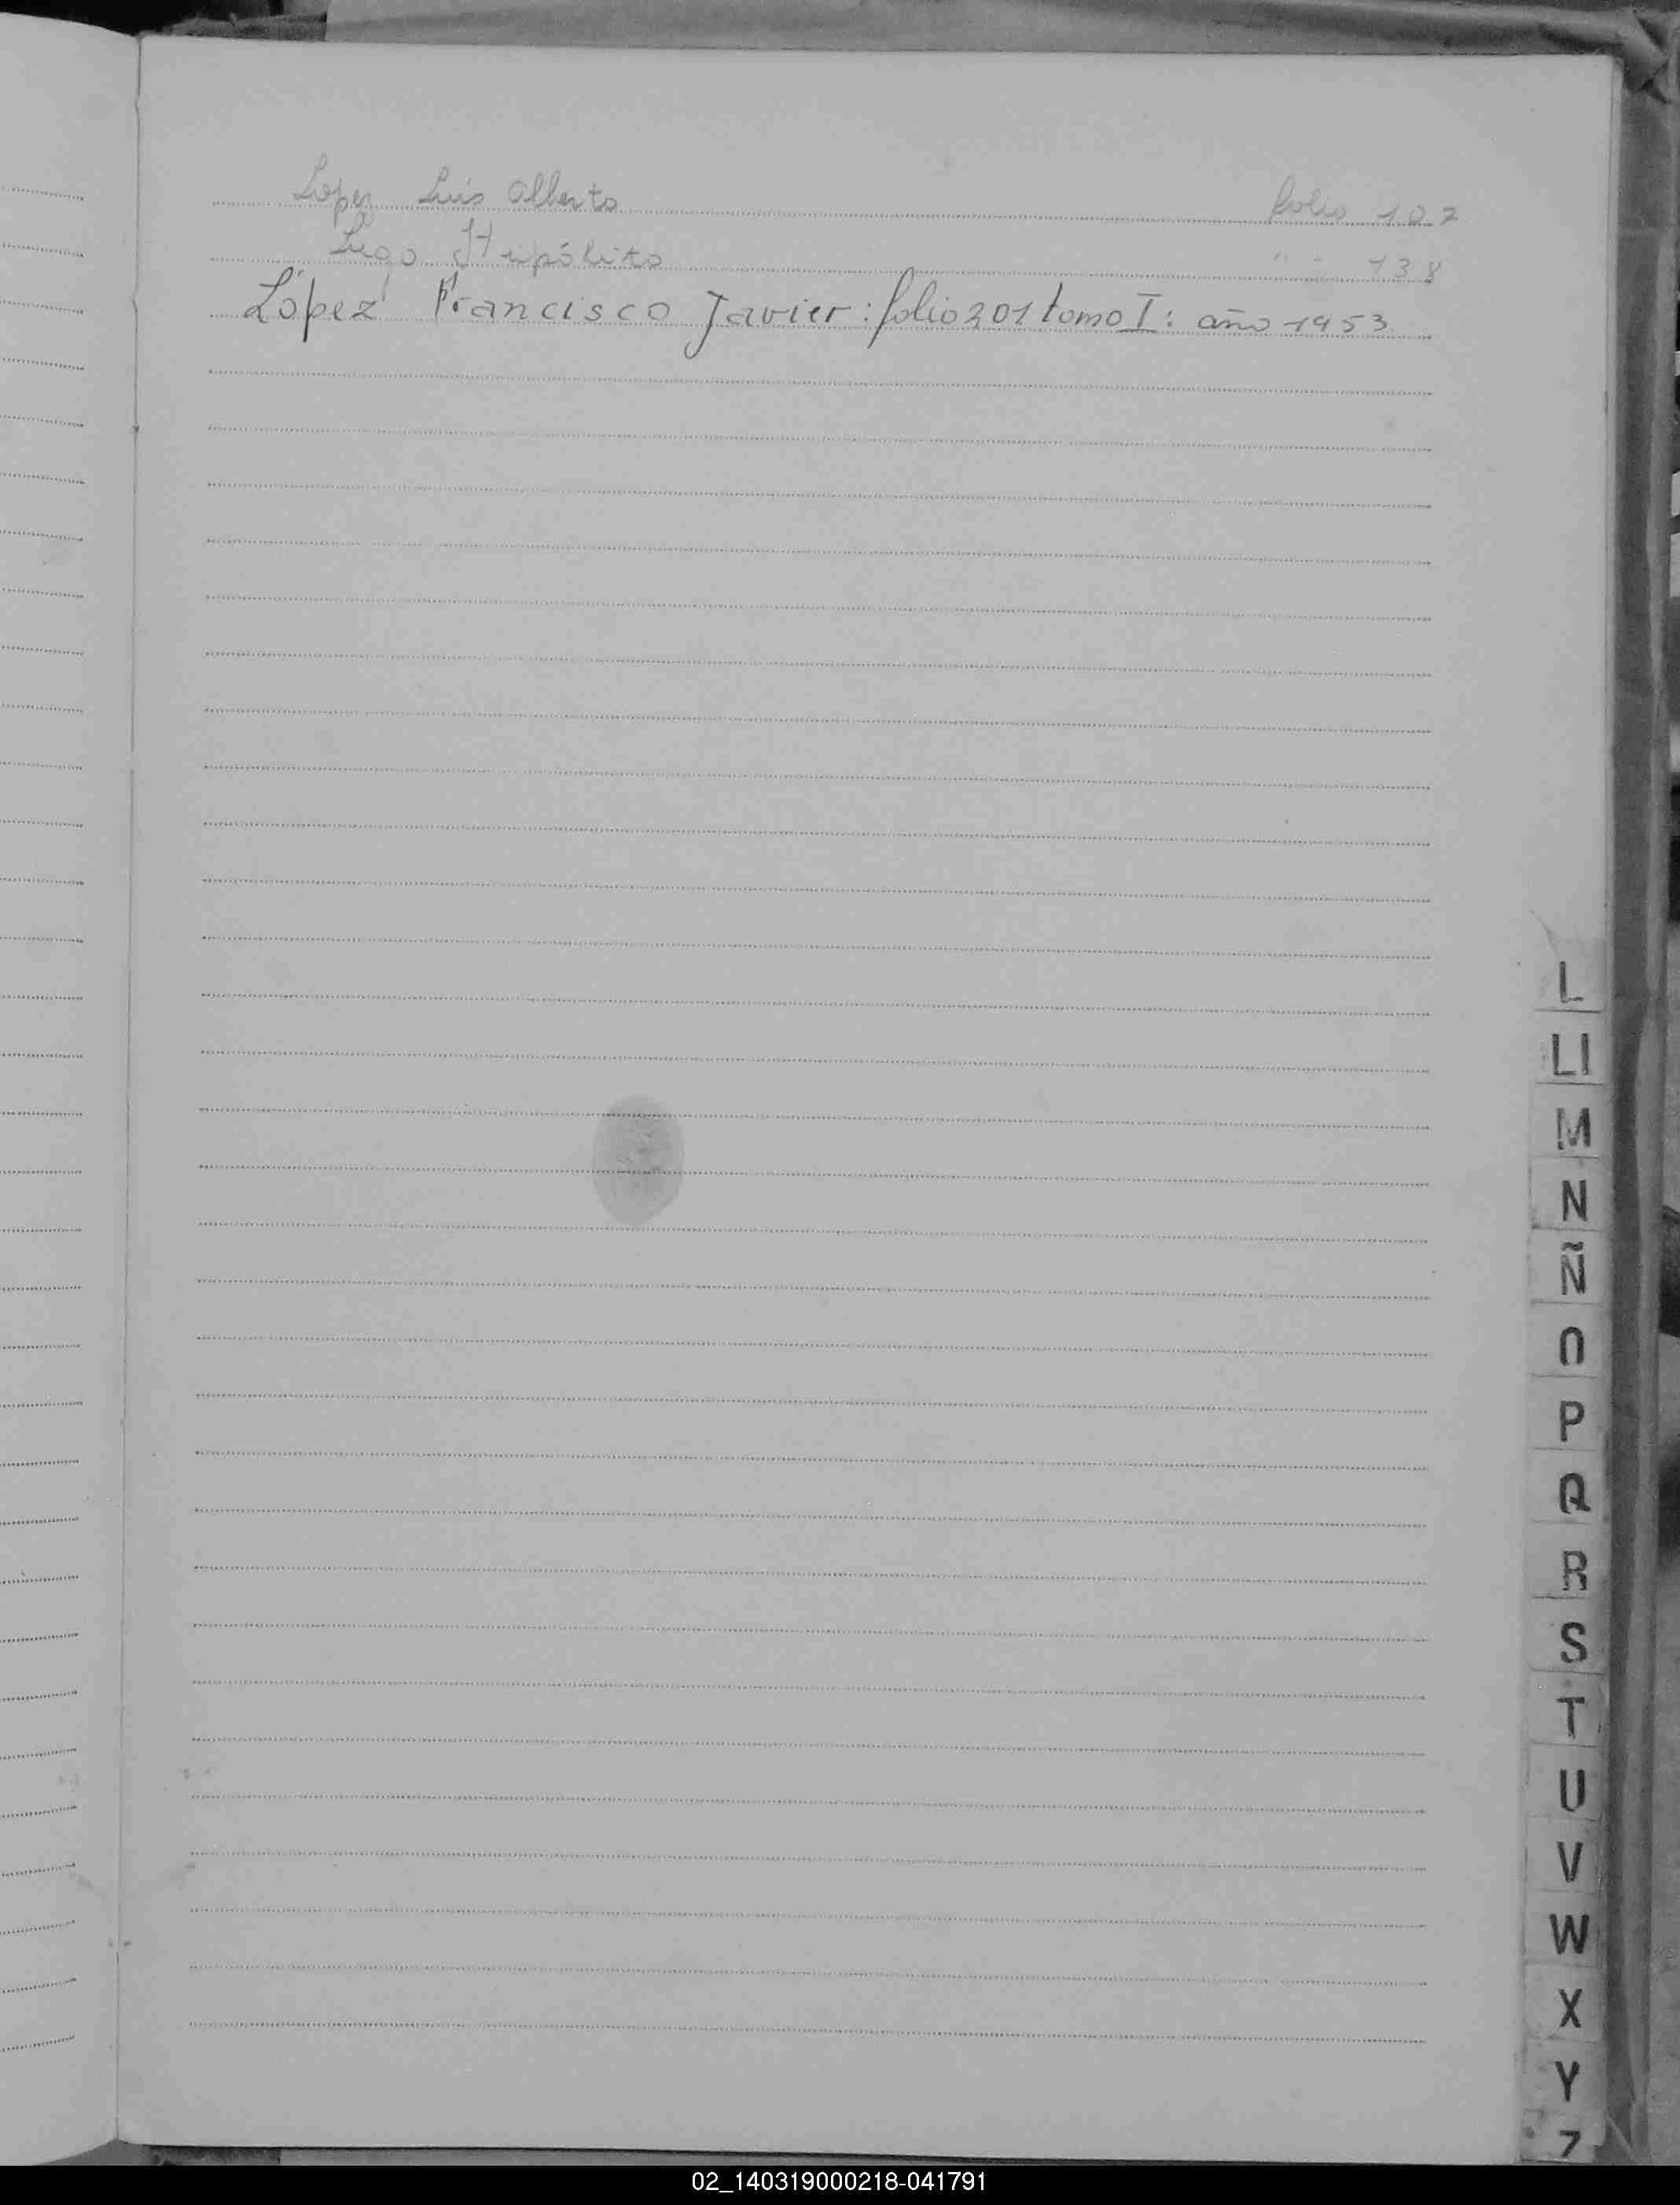 Lopez Luis Alberto folio 107
Lugo Hupólito " " 138
López Francisco Javier: folio 201 tomo I: año 1953
L
Ll
M
N
Ñ
O
P
Q
R
S
T
U
V
W
X
Y
Z
02_140319000218-041791